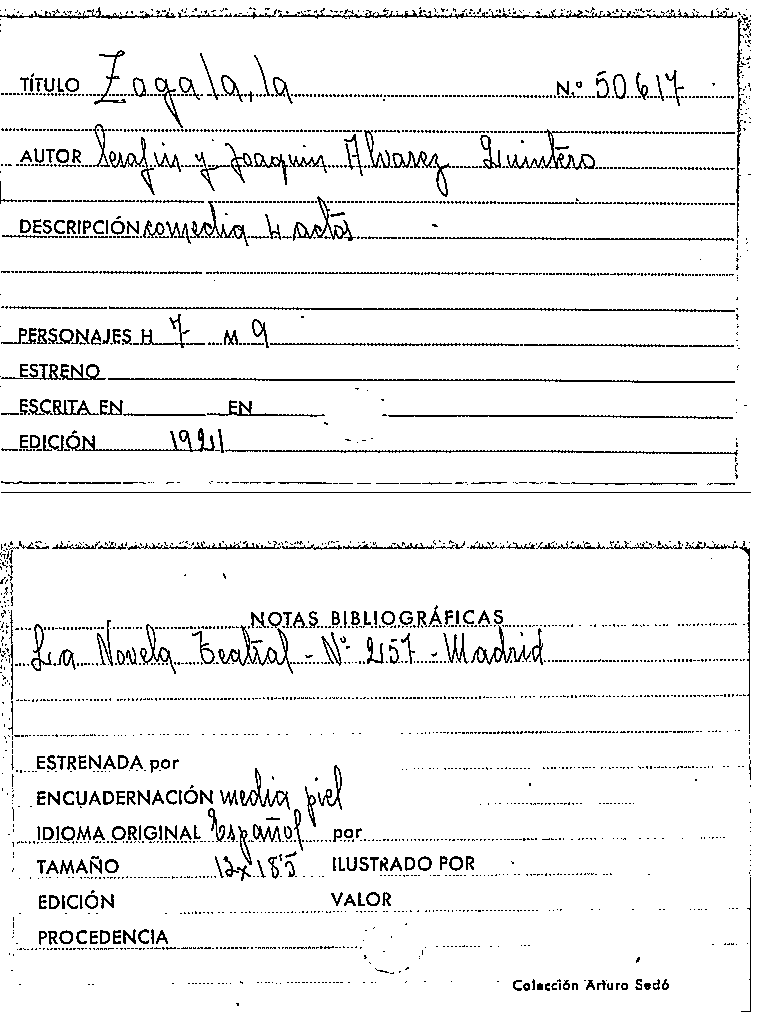 TÍTULO Zagala, la N.º 50617
AUTOR Serafin y Joaquin Alvarez Quintero
DESCRIPCIÓN comedia 4 actos
PERSONAJES H 7 M 9
ESTRENO
ESCRITA EN EN
EDICIÓN 1921
NOTAS BIBLIOGRÁFICAS
La Novela Teatral - Nº 257 - Madrid
ESTRENADA por
ENCUADERNACIÓN media piel
IDIOMA ORIGINAL Español por
TAMAÑO 12x18'5 ILUSTRADO POR
EDICIÓN VALOR
PROCEDENCIA
Colección Arturo Sedó